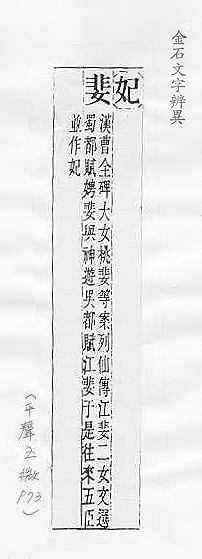 金石文字辨異
妃
婓
漢曹全碑大女桃婓等案列仙傳江婓二女文選
蜀都賦娉婓與神遊吳都賦江婓于是往來五臣
並作妃
(平聲五微
P.73)